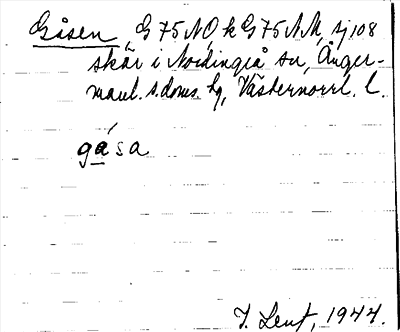 Gåsen, G 75 NO k G 75 NN, sj 108
skär i Nordingrå sn, Ånger-
manl. s. doms. hg, Västernorrl. l.
gása
J. Lent, 1944.